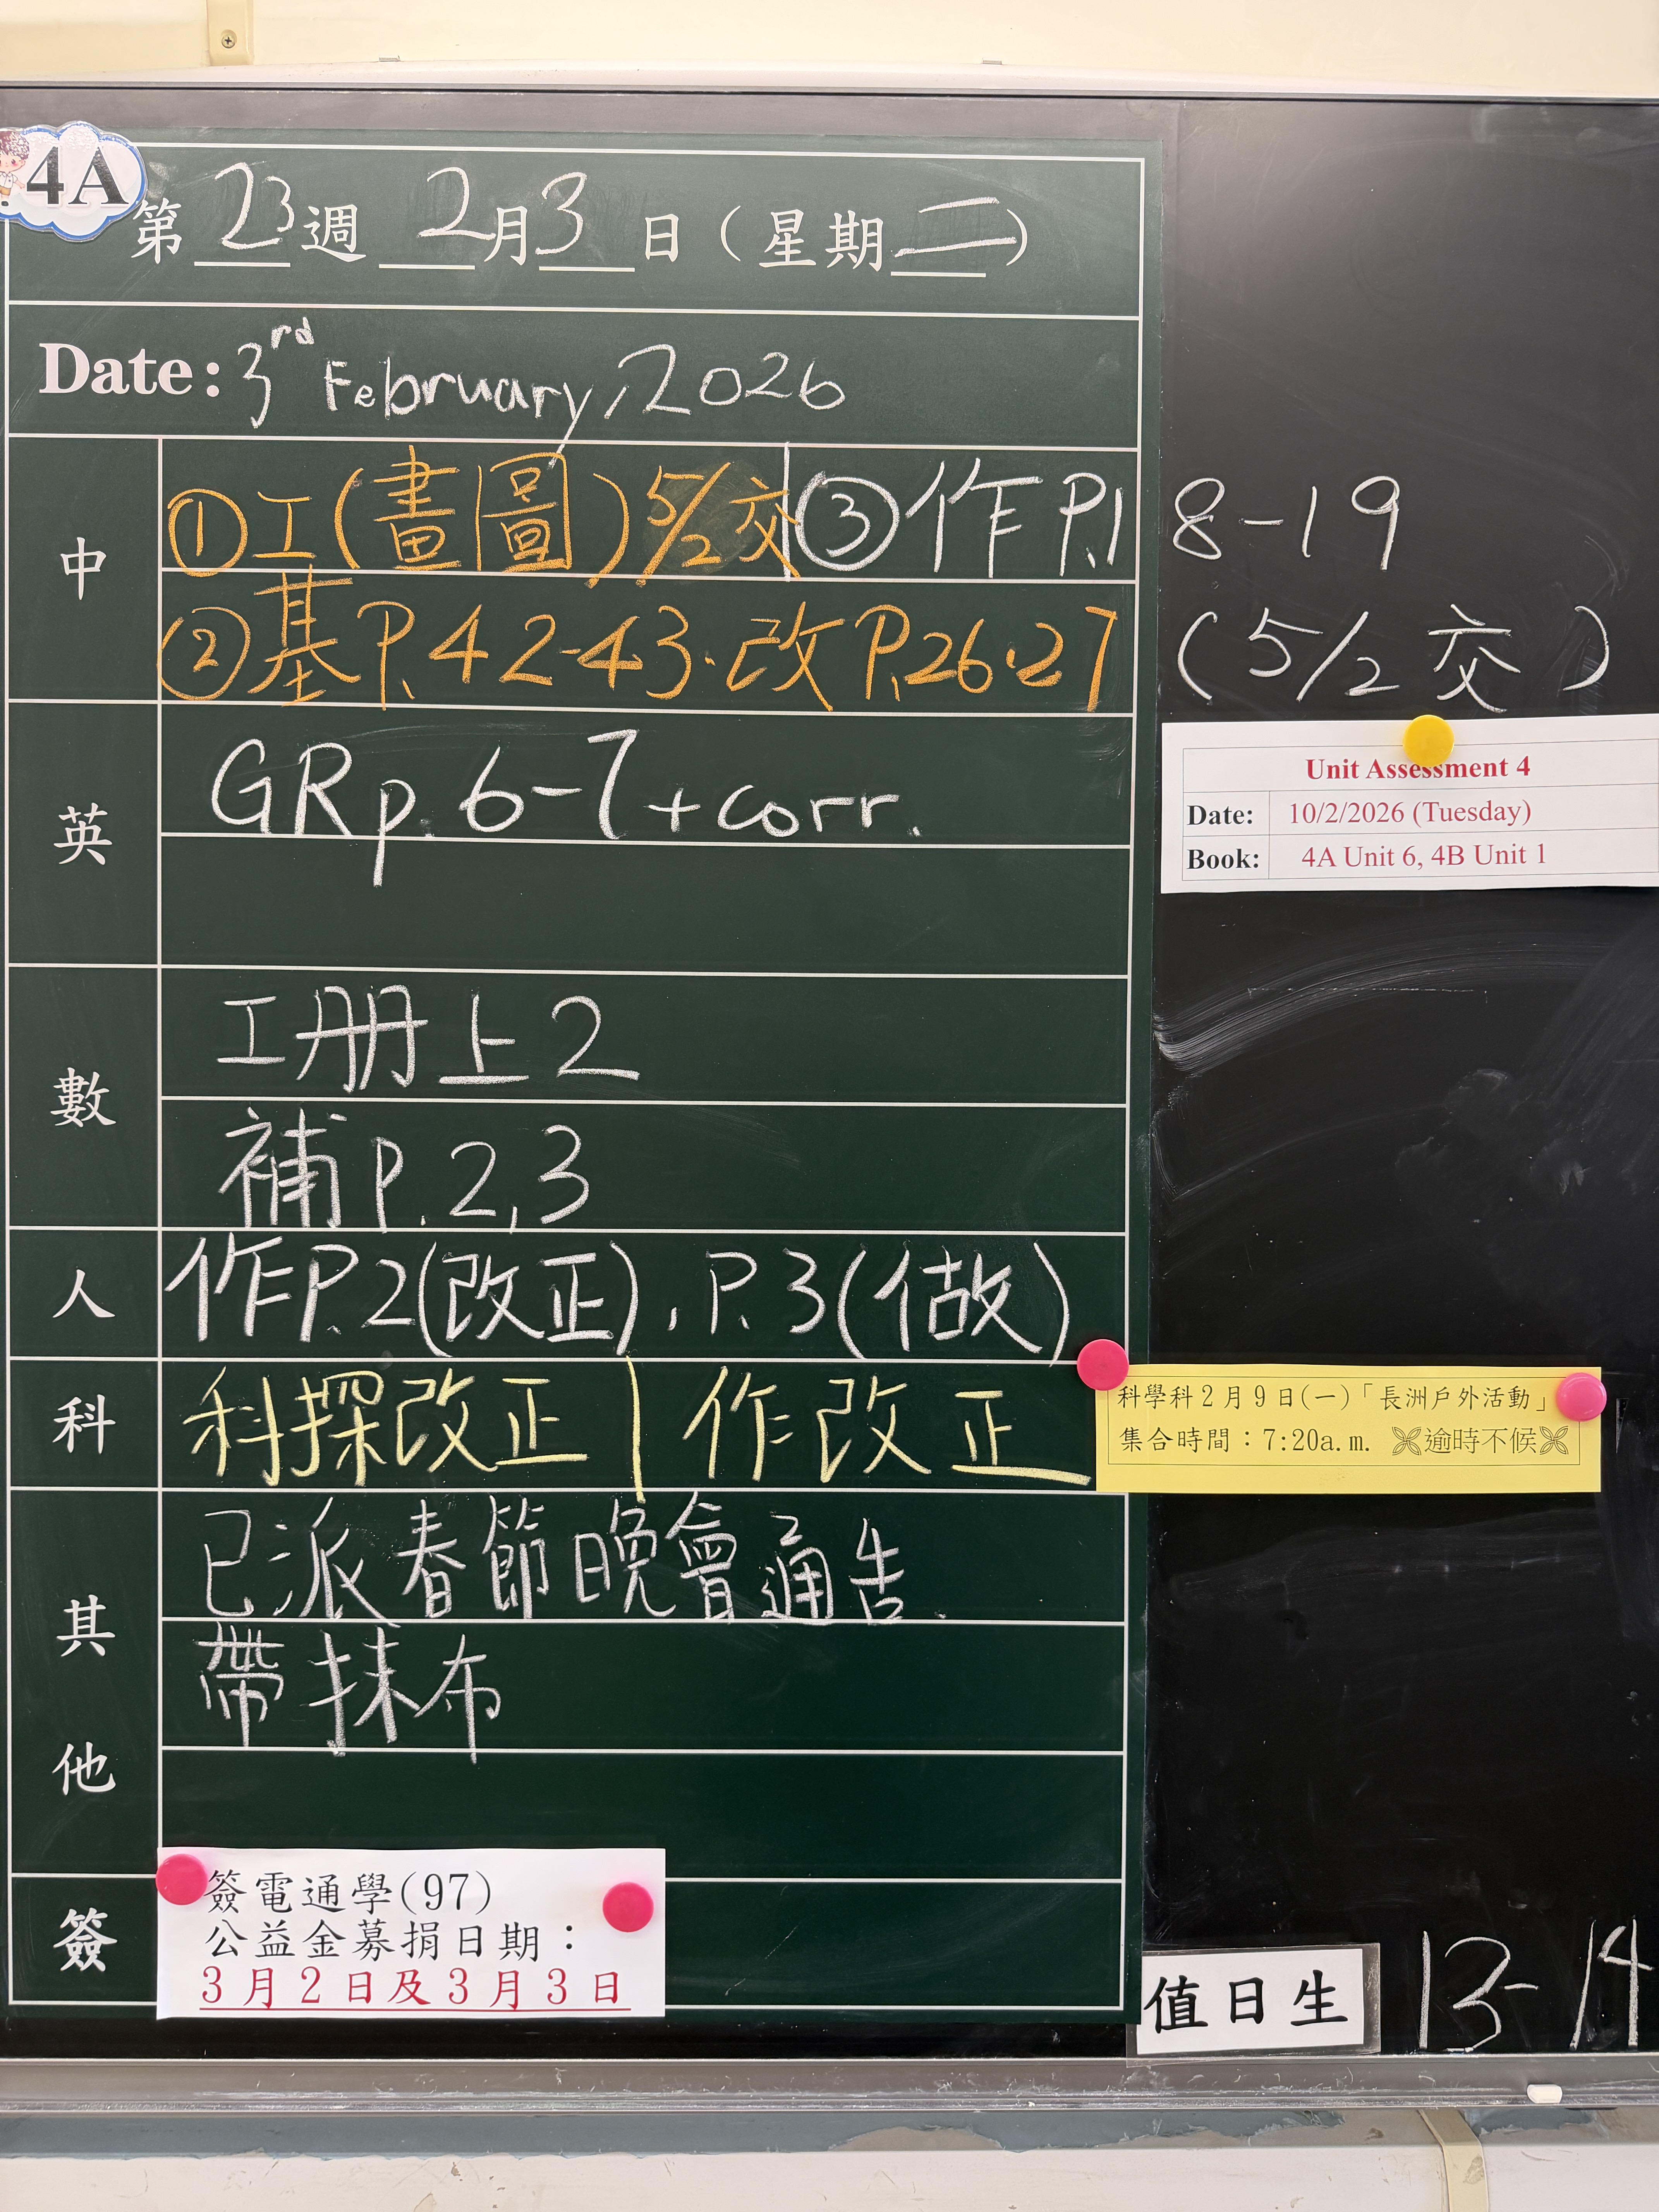 4A
第 23 週 2月3日（星期二）
Date: 3rd February, 2026
中
①工(畫圖) 5/2交 ③作 P.18-19
②基P.42-43·改P.26·27 (5/2交)
英
GR p. 6-7 + corr.
Unit Assessment 4
Date: 10/2/2026 (Tuesday)
Book: 4A Unit 6, 4B Unit 1
數
工册上2
補P.2,3
人
作P.2(改正), P.3(做)
科
科探改正 | 作改正
科學科2月9日(一)「長洲戶外活動」
集合時間：7:20a.m. 逾時不候
其他
已派春節晚會通告.
帶抹布
簽
簽電通學(97)
公益金募捐日期：
3月2日及3月3日
值日生 13-14